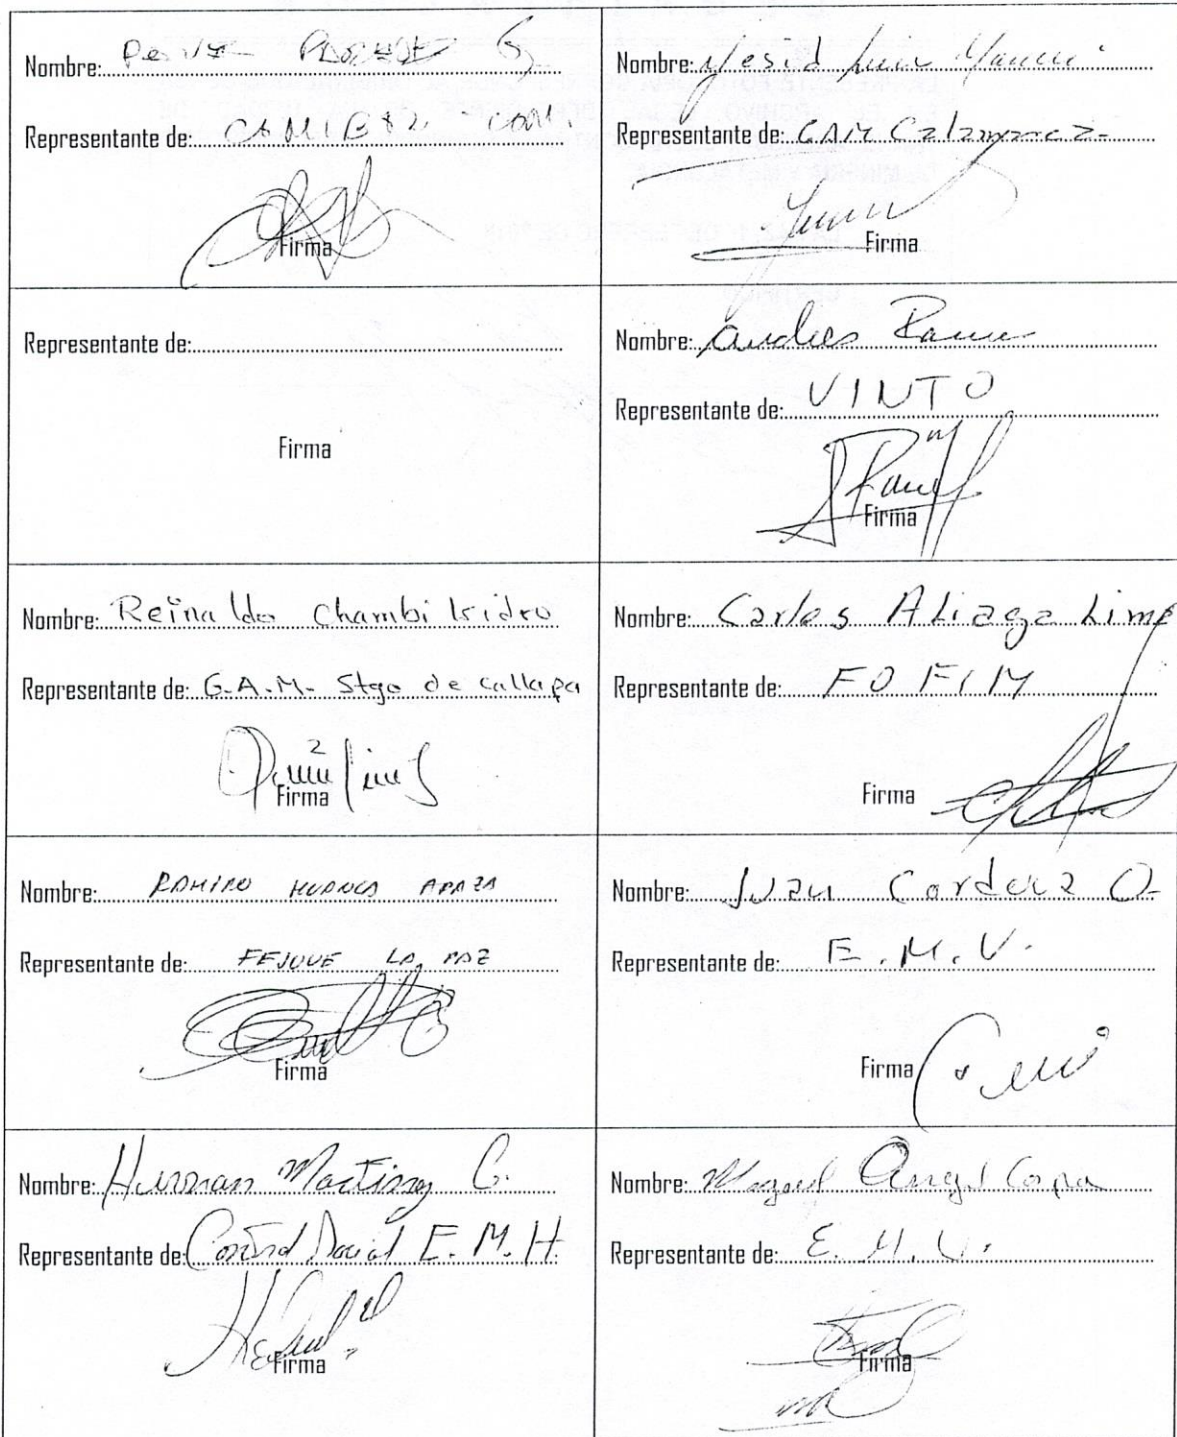 Nombre:
Representante de:
Firma
Nombre: Yesid Luis Mamani
Representante de: GAM Calamarca
Firma
Representante de:
Firma
Nombre: Andres Ramu
Representante de: VINTO
Firma
Nombre: Reinaldo Chambi Isidro
Representante de: G.A.M. Stgo de Callapa
Firma
Nombre: Carlos Aliaga Lima
Representante de: FOFIM
Firma
Nombre: RAMIRO HUANCA APAZA
Representante de: FEJUVE LA PAZ
Firma
Nombre: Juan Cordero O.
Representante de: E.M.V.
Firma
Nombre: Hernan Martinez C.
Representante de: Control Social E.M.H.
Firma
Nombre: Miguel Angel Copa
Representante de:
Firma